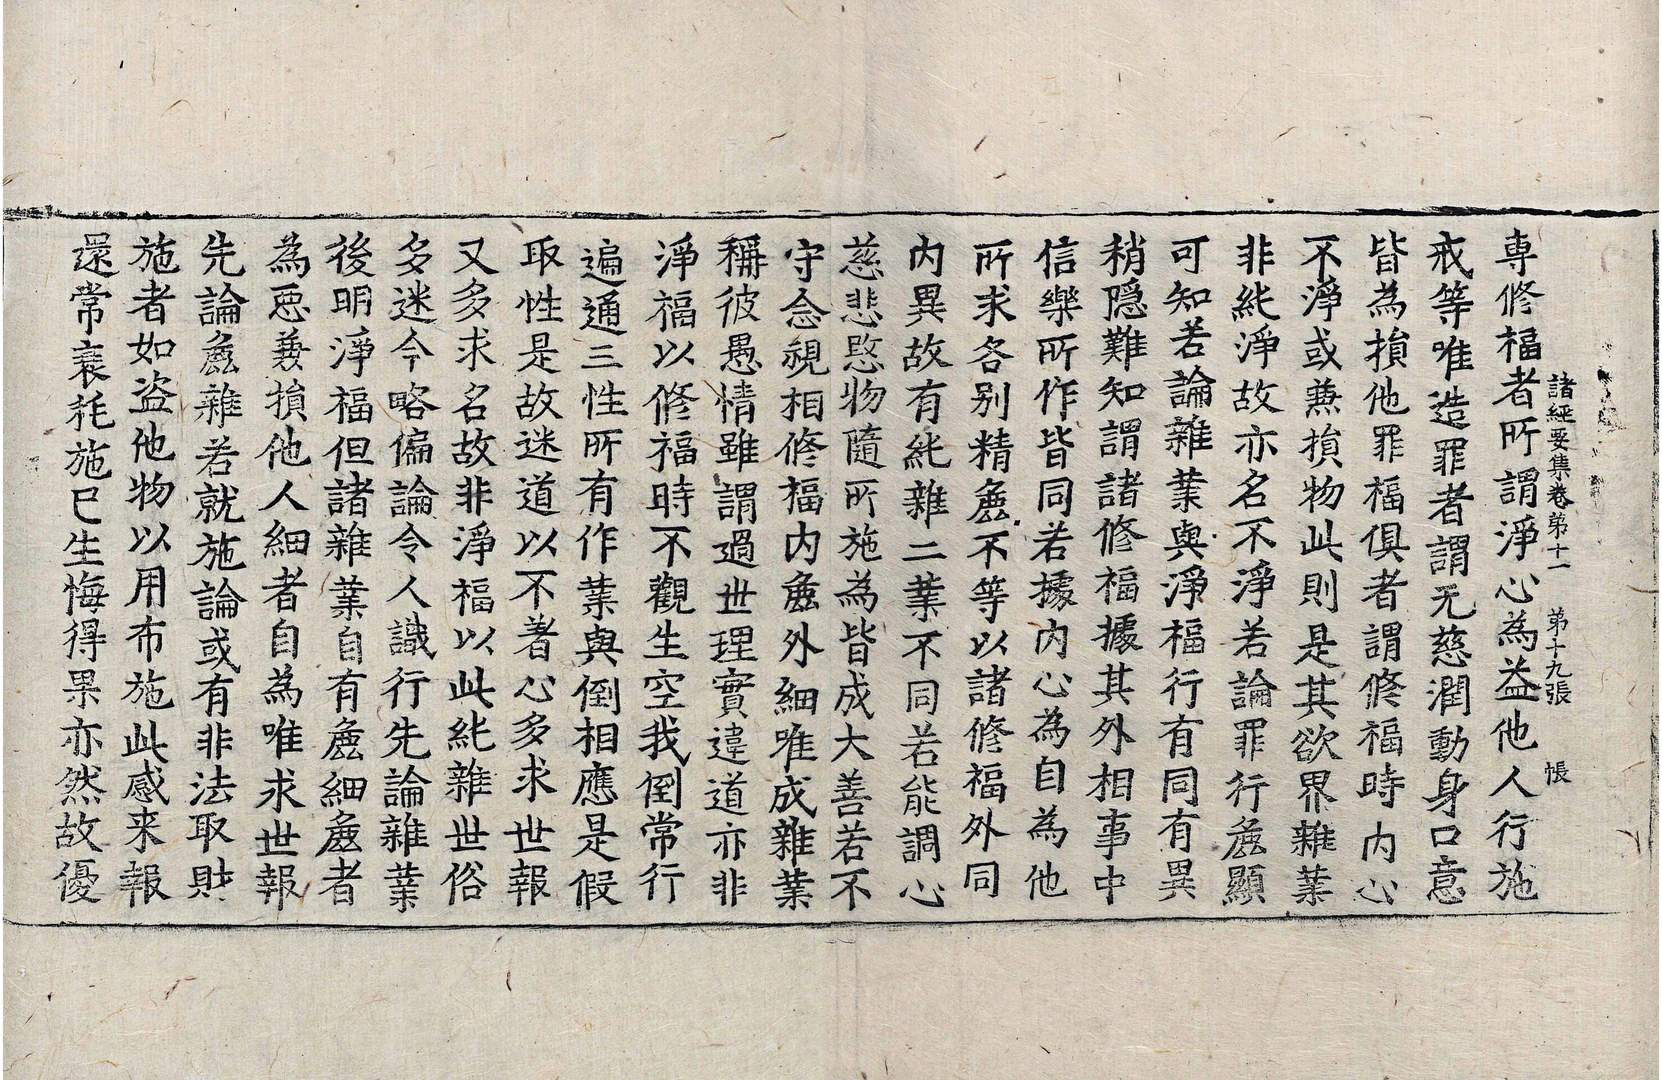 諸經要集卷弟十一　弟十九張　悵
専修福者所謂淨心為益他人行施
戒等唯造罪者謂无慈潤動身口意
皆為損他罪福俱者謂修福時內心
不淨或𠔥損物此則是其欲界雜業
非純淨故亦名不淨若論罪行麁顯
可知若論雜業與淨福行有同有異
稍隱難知謂諸修福據其外相事中
信樂所作皆同若據內心為自為他
所求各別精麁不等以諸修福外同
內異故有純雜二業不同若能調心
慈悲愍物隨所施為皆成大善若不
守念視相修福內麁外細唯成雜業
稱彼愚情雖謂過世理實違道亦非
淨福以修福時不觀生空我倒常行
遍通三性所有作業與倒相應是假
取性是故迷道以不著心多求世報
又多求名故非淨福以此純雜世俗
多迷今略偏論令人識行先論雜業
後明淨福但諸雜業自有麁細麁者
為惡兼損他人細者自為唯求世報
先論麁雜若就施論或有非法取財
施者如盜他物以用布施此感来報
還常衰耗施已生悔得果亦然故優